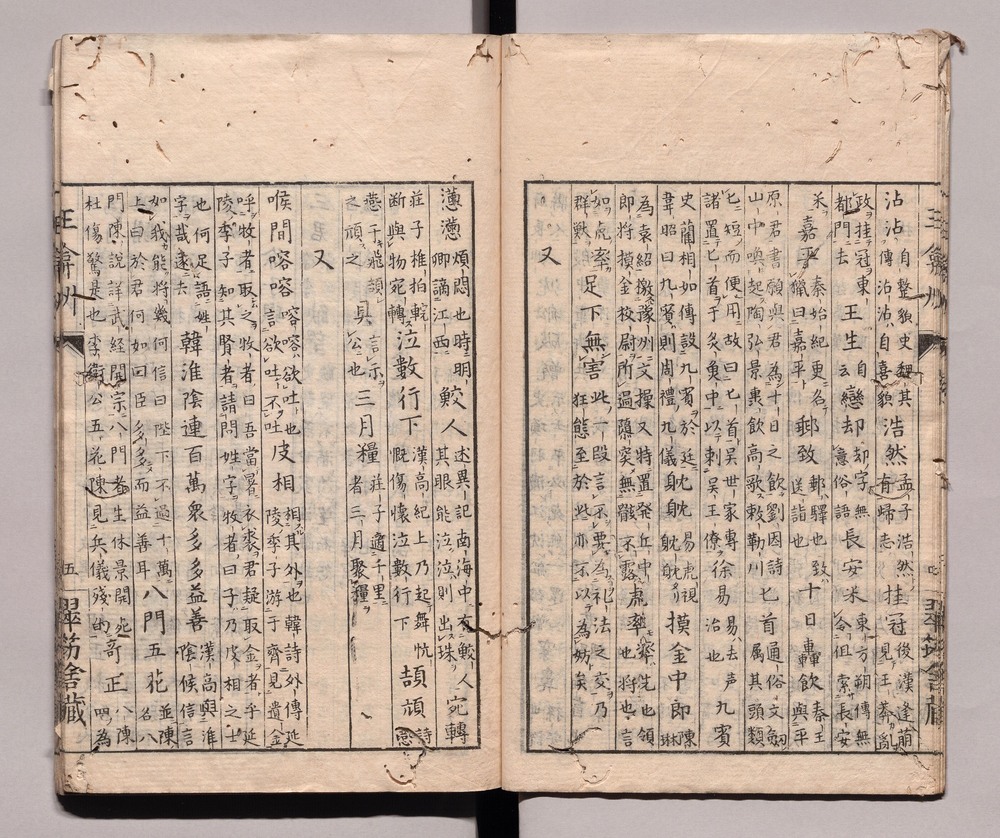 沾沾 自整貌史魏其傳沾沾自喜貌 浩然 孟子浩然有歸志 挂冠 後漢逢萌見王莽亂
政挂冠東都門去 王生 自云 戀却 却字無意俗語 長安米 東方朔傳無令但索長安
米 嘉平 秦始紀更名獵曰嘉平 郵致 郵驛也致送詣也 十日轟飲 秦王與平
原君書願與君為十日之飲劉因詩山中喚起陶弘景轟飲高歌敕勒川 匕首 通俗文匕首劔屬其頭類
匕短而便用故曰匕首吳世家專諸置匕首于炙魚中以刺吳王僚 徐易 易去声治也 九賓
史藺相如傳設九賓於廷韋昭曰九賓則周禮九儀 眈眈 易虎視眈眈 摸金中郎 陳琳
為袁紹檄豫州文操又特置発丘中郎將摸金校尉所過隳突無骸不露 虎率 率先也領也将也言
如虎率群獸 足下無害 此段言不要為礼法之交乃狂態至於此亦不以為妨矣
又
王弇州 四 翠筠舍藏
懣懣 煩悶也時明卿謫江西 鮫人 述異記南海中有鮫人其眼能泣泣則出珠 宛轉
莊子椎拍輐断與物宛轉 泣數行下 漢高紀上乃起舞忼慨傷懷泣數行下 頡頏 詩
燕于飛頡之頏之 具 言示公也 三月糧 莊子適千里者三月聚糧
又
喉間喀喀 喀喀欲吐也言欲吐不吐 皮相 相其外也韓詩外傳延陵季子游于齊見遺金
呼牧者取之牧者曰吾當暑衣裘君疑取金者乎延陵季子知其賢者請問姓字牧者曰子乃皮相之士
也何足語姓字哉遂去 韓淮陰連百萬衆多多益善 漢高與淮陰候信言
如我能将幾何信曰陛下不過十萬上曰於君何如曰臣多多而益善耳 八門五花 並陳名八
門陳說詳武経開宗八門者生休景開死杜傷驚是也李衛公五花陳見兵儀殘 奇正 八陳四為
王弇州 五 翠筠舍藏